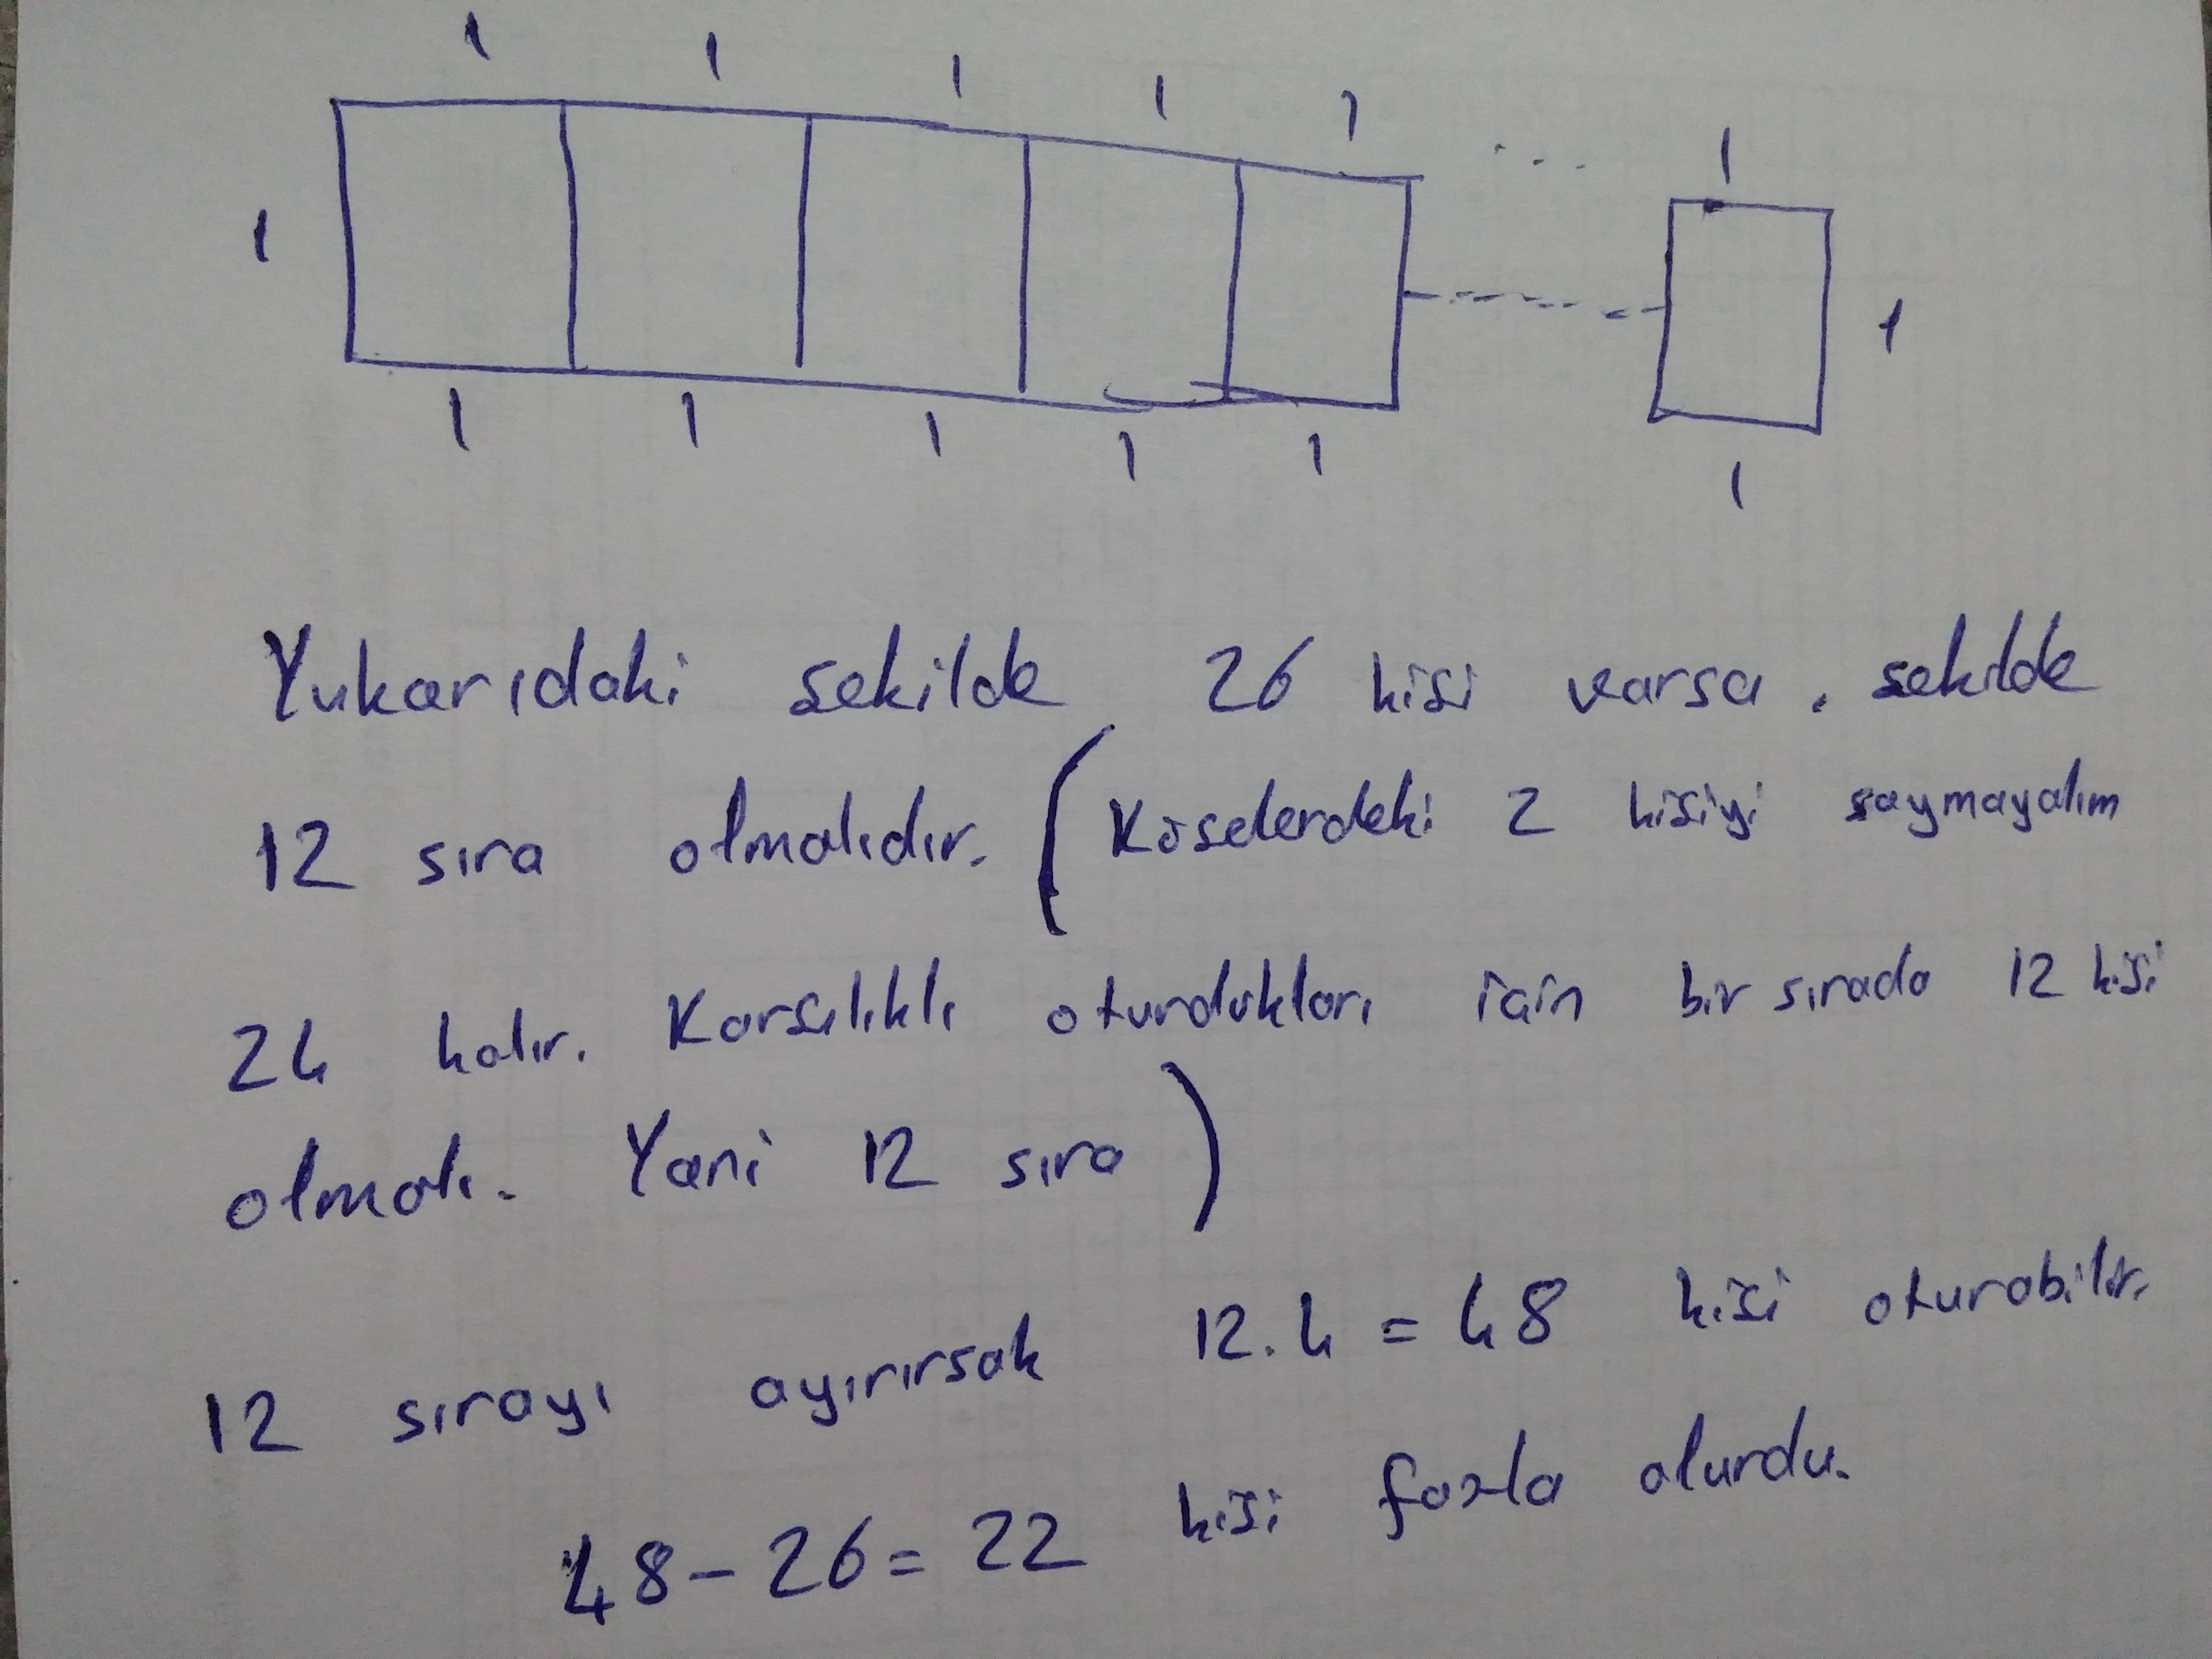 1 1 1 1 1 ... 1
1 1
1 1 1 1 1 1
Yukarıdaki şekilde 26 kişi varsa. şekilde
12 sıra olmalıdır. (Köşelerdeki 2 kişiyi saymayalım
24 kalır. Karşılıklı oturdukları için bir sırada 12 kişi
olmalı. Yani 12 sıra)
12 sırayı ayırırsak 12.4 = 48 kişi oturabilir.
48 - 26 = 22 kişi fazla olurdu.